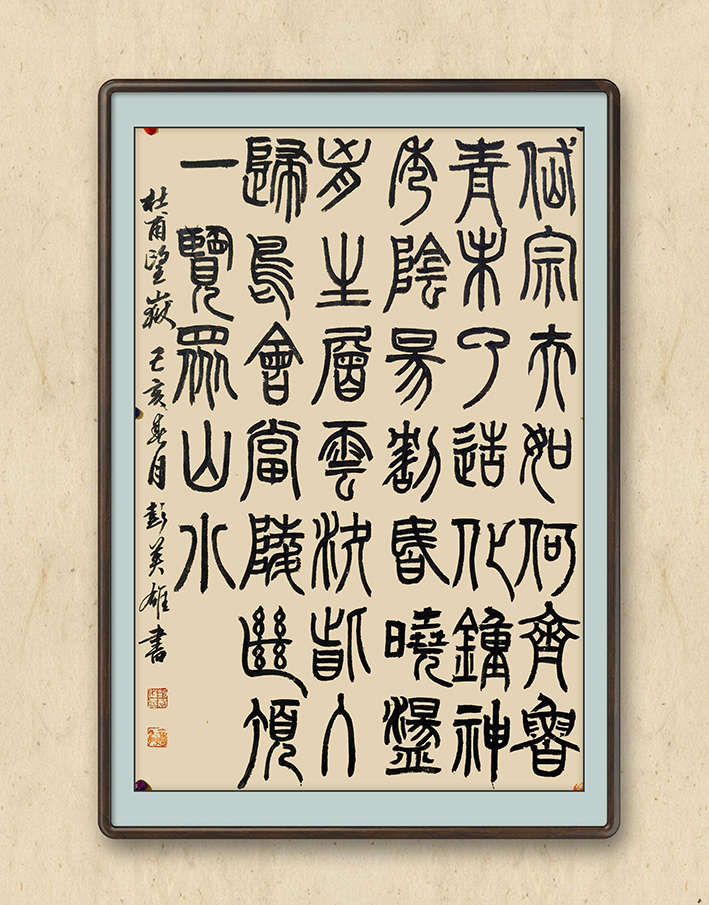 岱宗夫如何齊魯
青未了造化鍾神
秀陰昜割昏曉盪
胷生層雲決眥入
歸鳥會當陵絕頂
一覽眾山小
杜甫望嶽 己亥春月彭英雄書